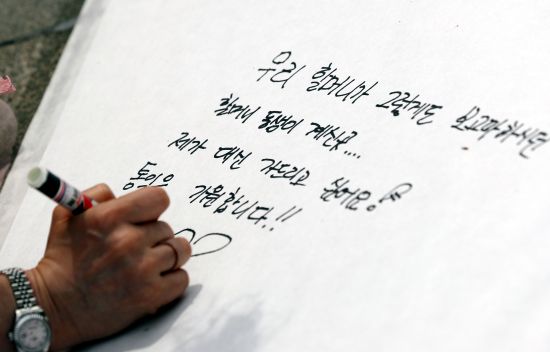 우리 할머니가 그렇게도 보고파하시던
할머니 동생이 계신곳....
제가 대신 가드리고 싶어요!
통일을 기원합니다!!